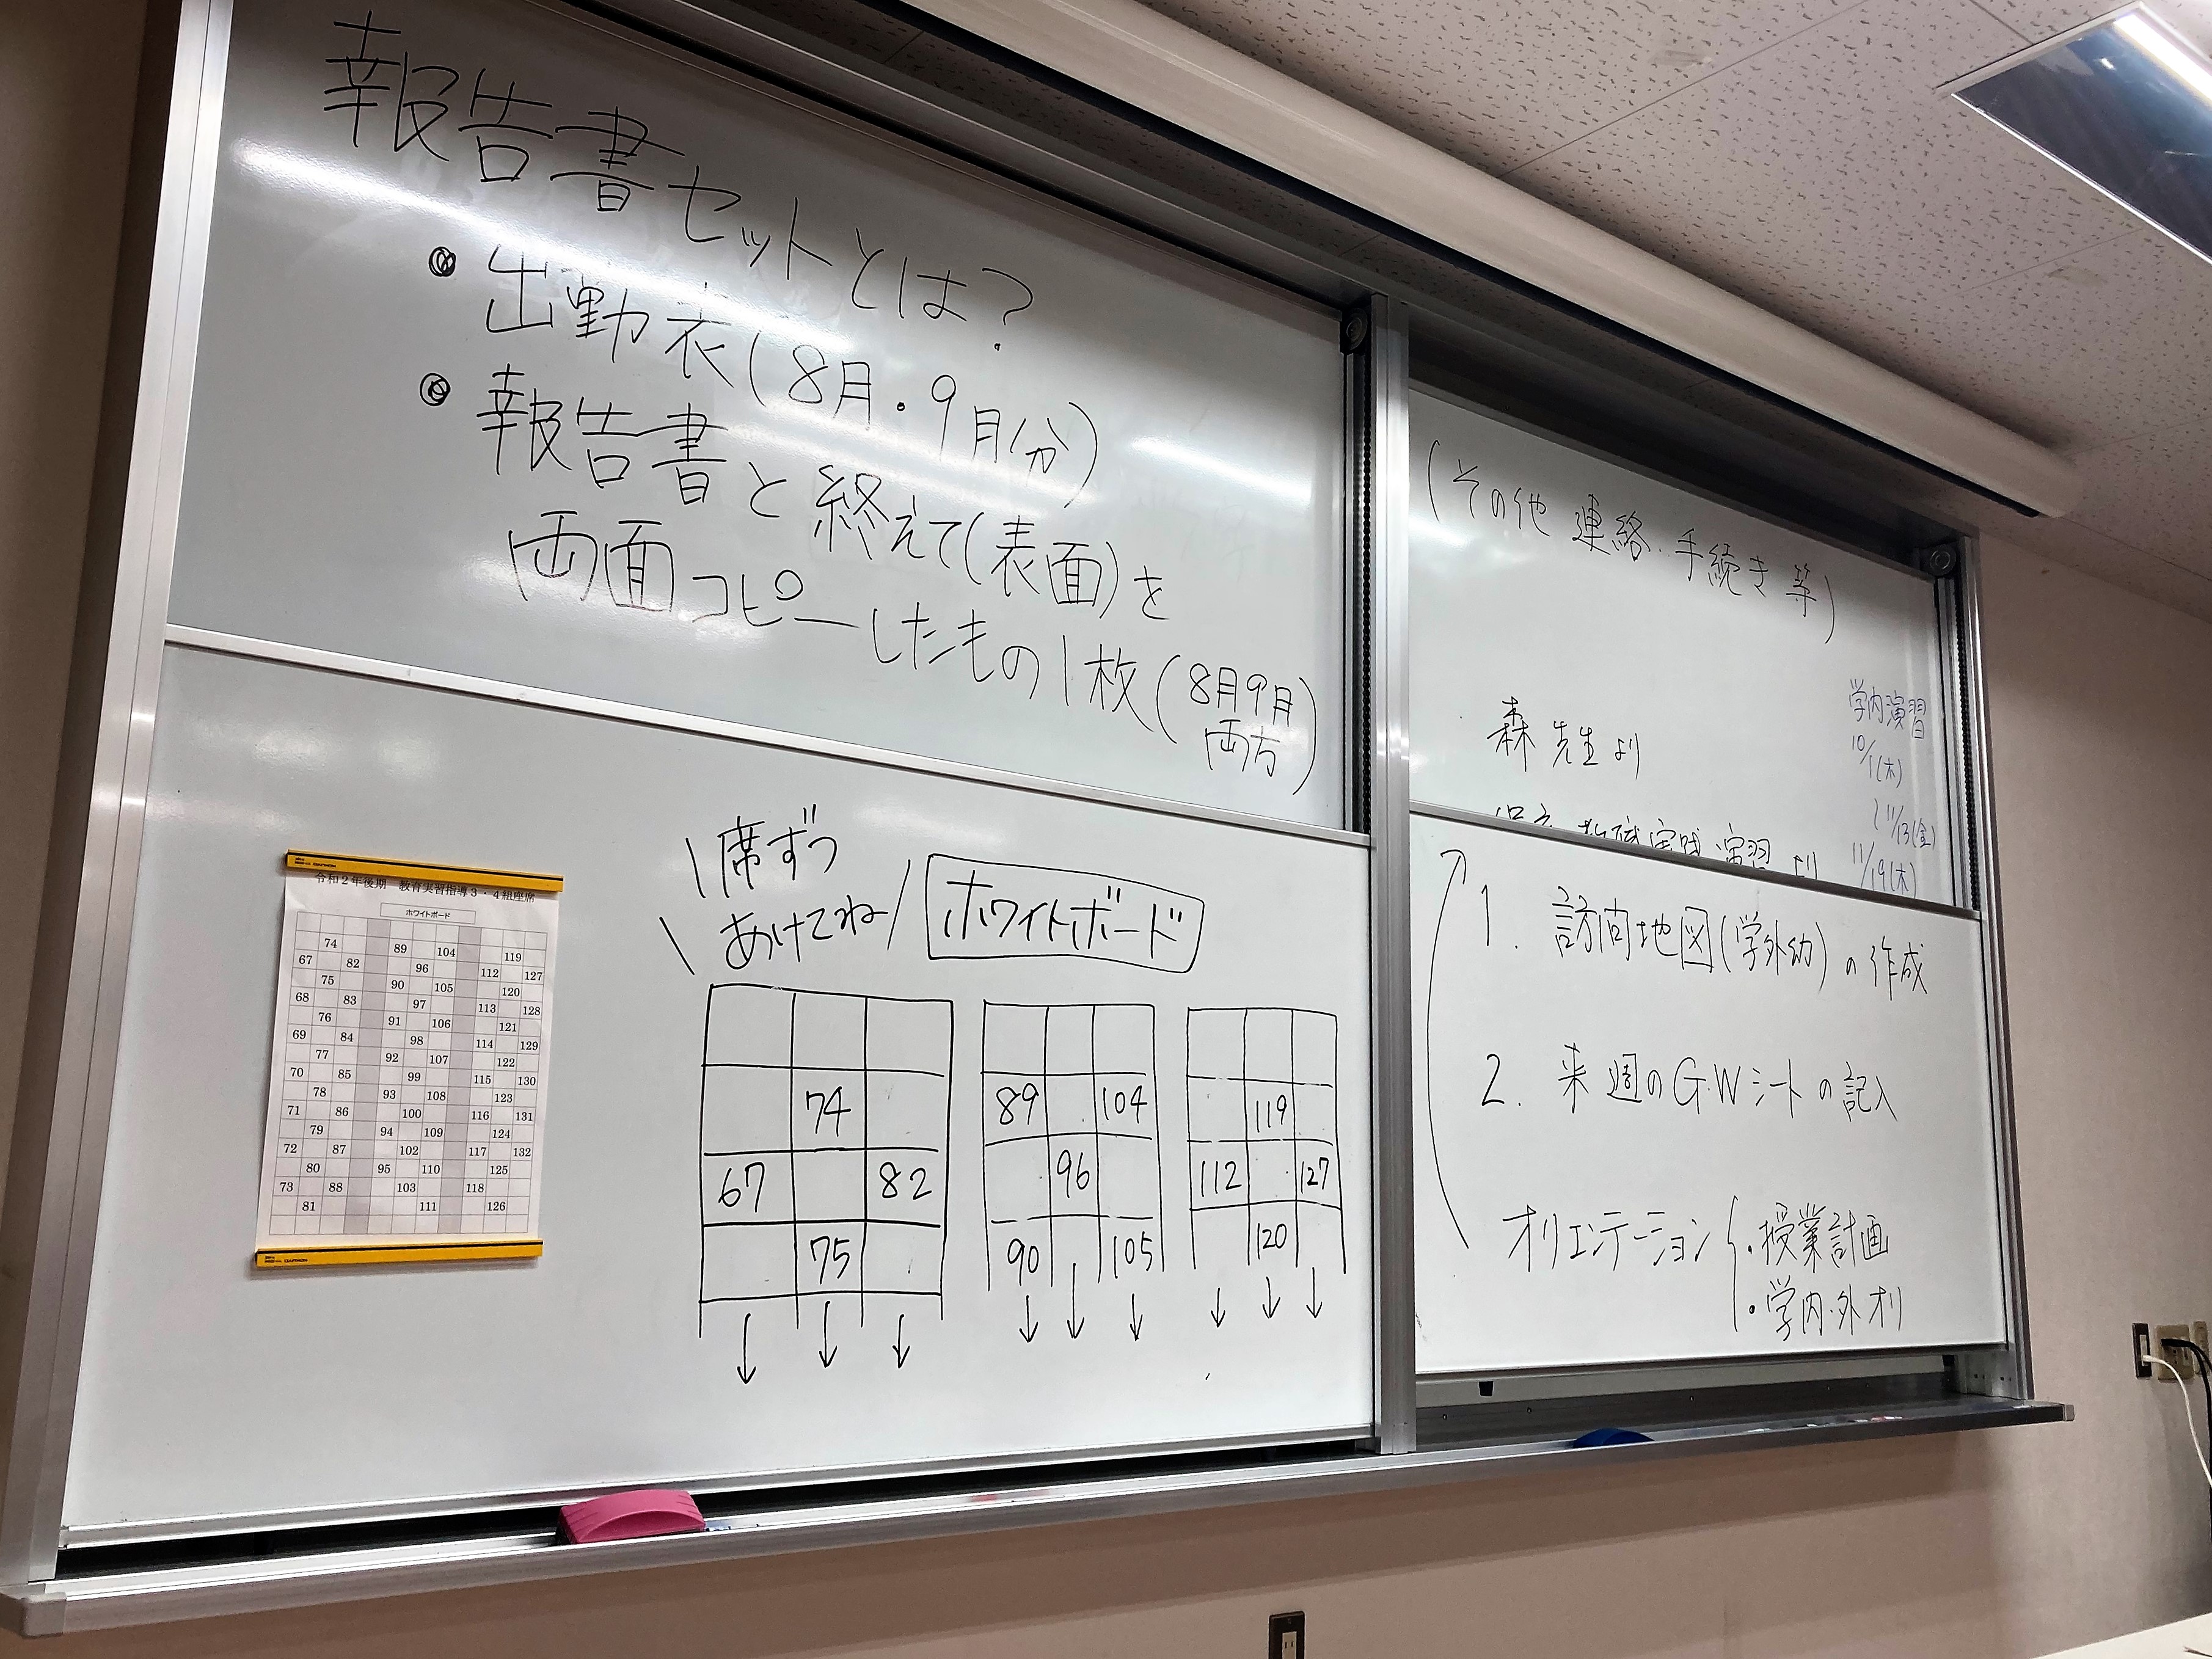 報告書セットとは?
・出勤表(8月・9月分)
・報告書と終えて(表面)を
両面コピーしたもの1枚(8月9月
両方)
1席ずつ
あけてね
ホワイトボード
74
89 104
119
67 82
96
112 127
75
90 105
120
↓ ↓ ↓ ↓ ↓ ↓ ↓ ↓ ↓
令和2年後期 教育実習指導3・4組座席
ホワイトボード
74 89 104 119
67 82 96 112 127
75 90 105 120
68 83 97 113 128
76 91 106 121
69 84 98 114 129
77 92 107 122
70 85 99 115 130
78 93 108 123
71 86 100 116 131
79 94 109 124
72 87 102 117 132
80 95 110 125
73 88 103 118
81 111 126
(その他 連絡・手続き等)
森先生より
教職実践演習より
学内演習
10/1(木)
11/13(金)
11/19(木)
1. 訪問地図(学外幼)の作成
2. 来週のG.Wシートの記入
オリエンテーション
・授業計画
・学内・外オリ